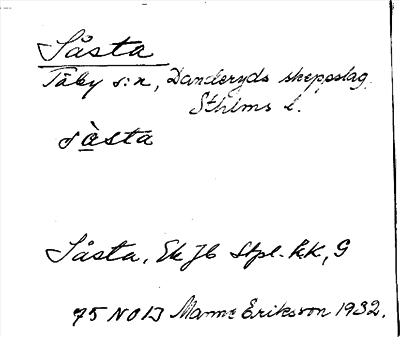 Såsta
Täby s:n, Danderyds skeppslag,
Sthlms l.
sàsta
Såsta, Ek Jb Stpl. kk, G
75 NO Manne Eriksson 1932.